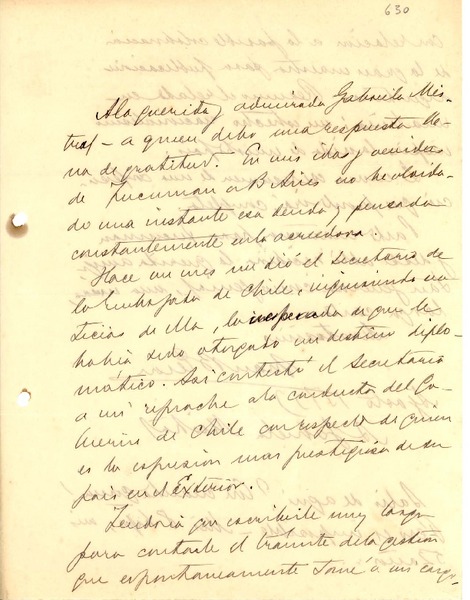 630
A la querida y admirada Gabriela Mis-
tral — a quien debo una respuesta lle-
na de gratitud. En mis idas y venidas
de Tucuman a B Aires no he olvida-
do una instante esa deuda, pensada
constantemente en la acreedora.
Hace un mes me dió el secretario de
la Embajada de Chile, inquiriendo no
ticias de Ud, la inesperada de que le
había sido otorgado un destino diplo-
mático. Así contestó el Secretario
a mi reproche a la conducta del Go-
bierno de Chile con respecto de quien
es la espresión mas prestigiosa de su
pais en el Exterior.
Tendría que escribirle muy largo
para contarle el trámite de la gestión
que espontaneamente tomé a mi cargo.